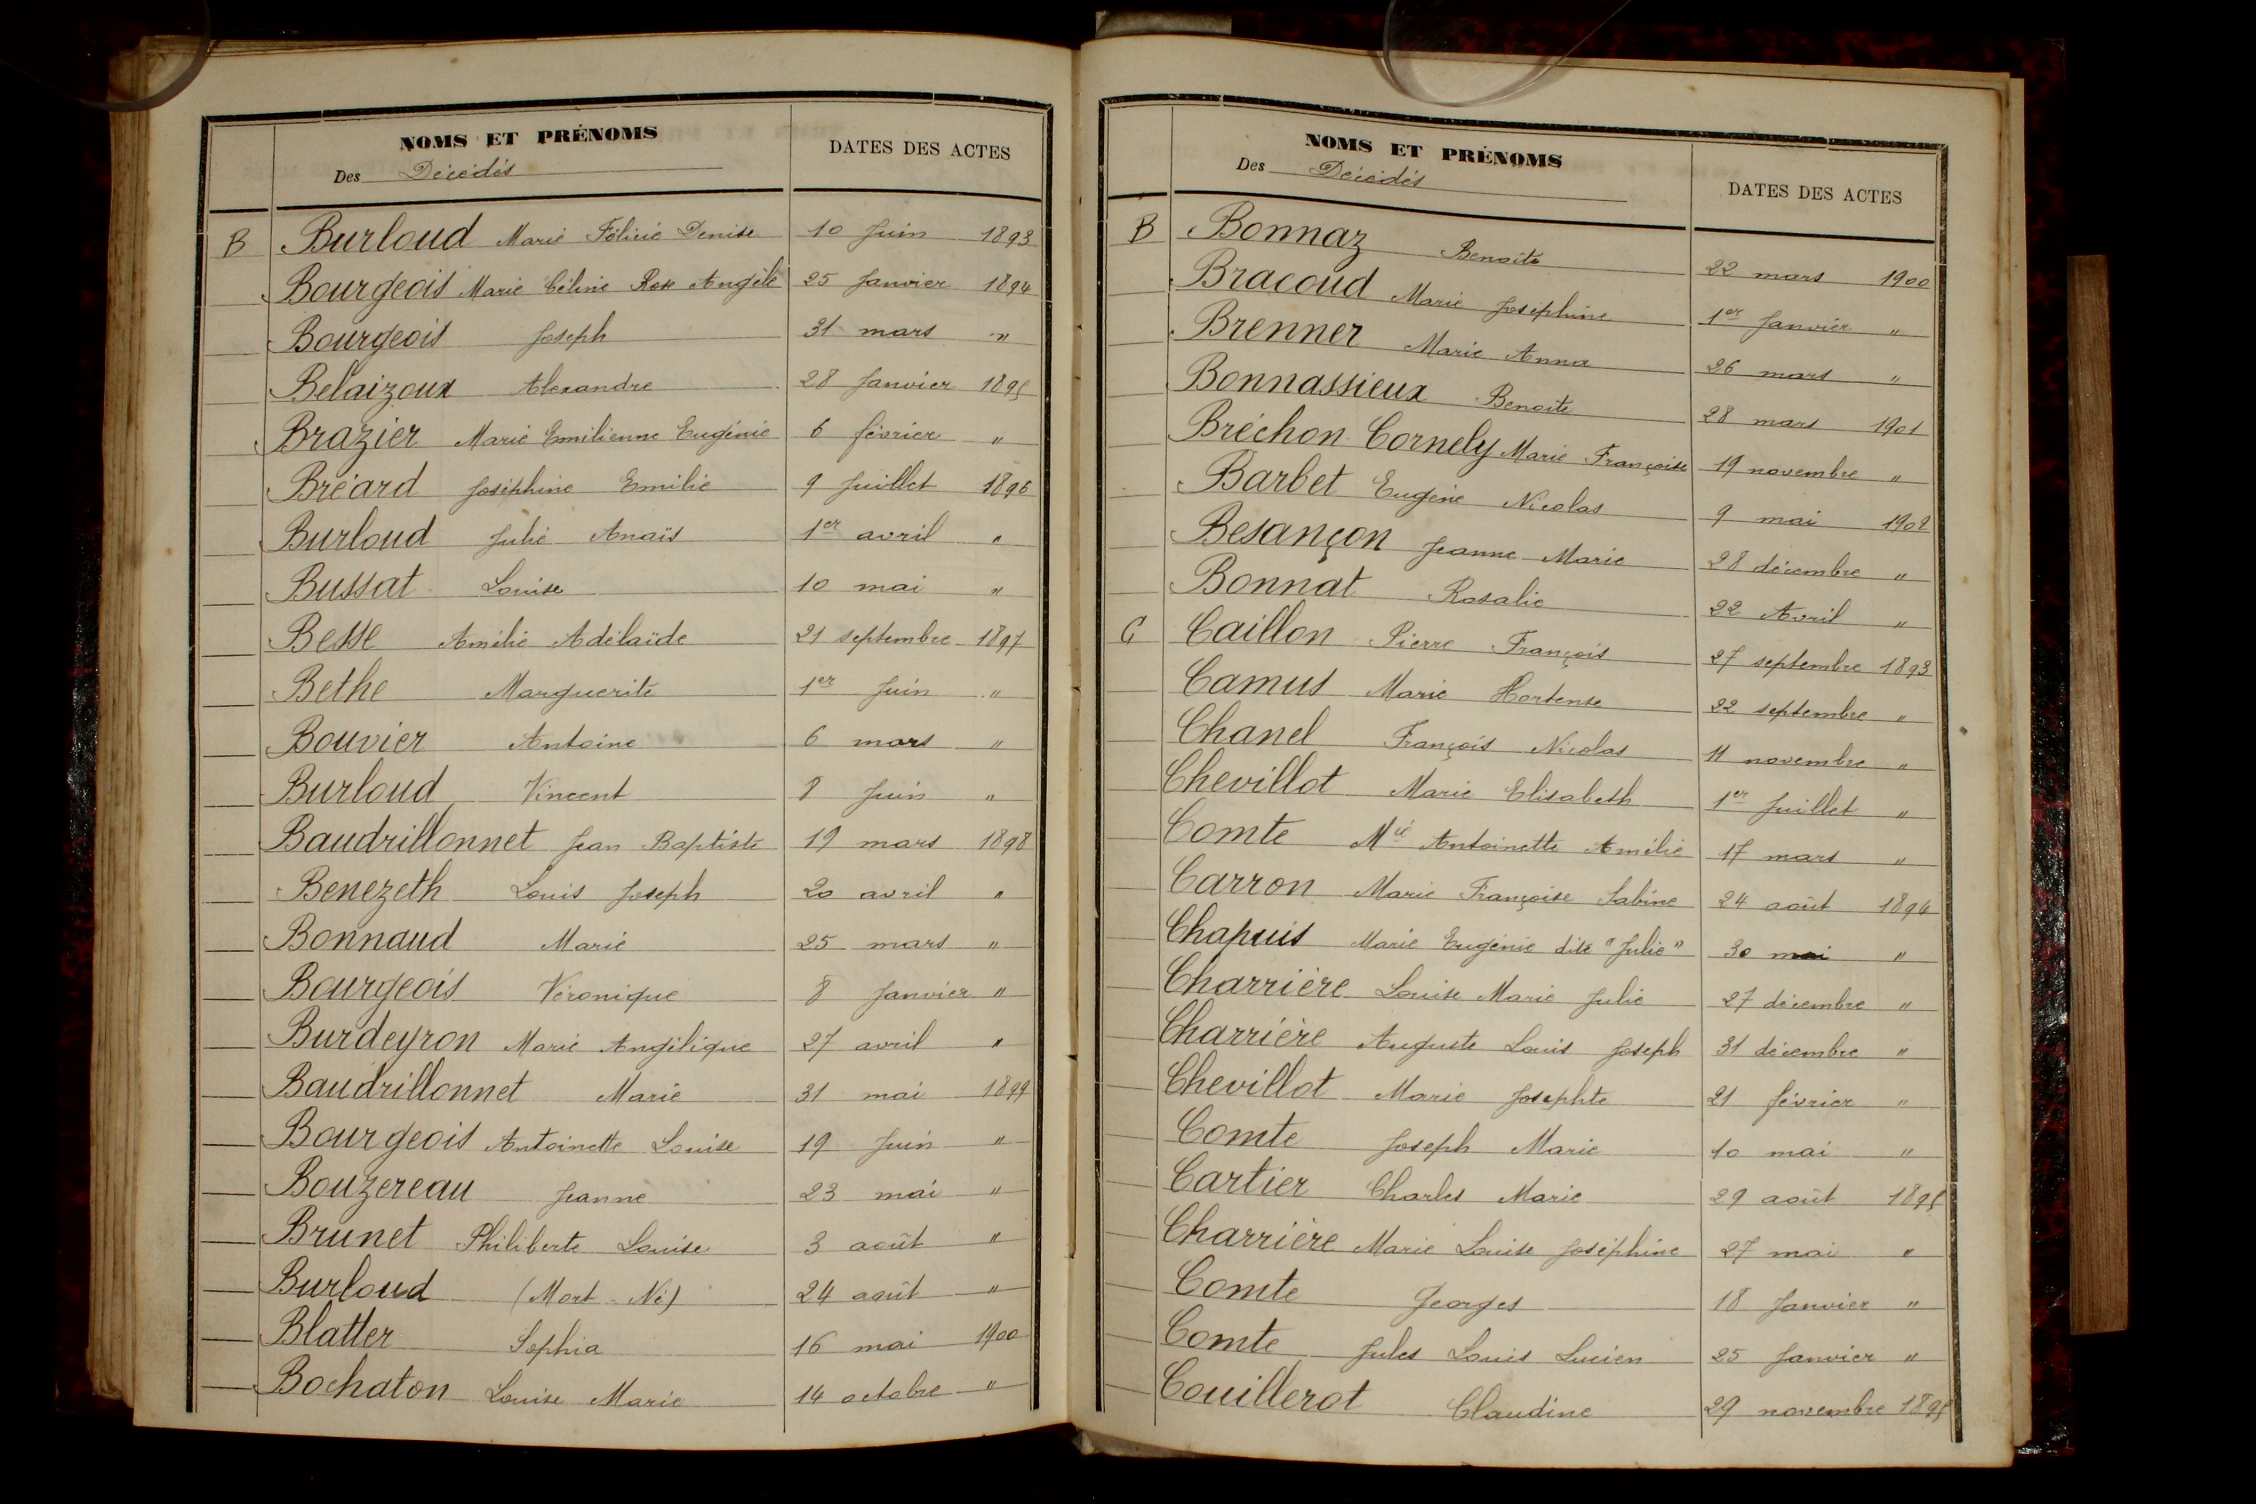 NOMS ET PRÉNOMS
Des Décédés
DATES DES ACTES
B Burloud Marie Félicie Denise 10 Juin 1893
Bourgeois Marie Céline Rose Angèle 25 Janvier 1894
Bourgeois Joseph 31 mars "
Belaizoux Alexandre 28 Janvier 1895
Brazier Marie Emilienne Eugénie 6 février "
Bréard Joséphine Emilie 9 Juillet 1896
Burloud Julie Anaïs 1er avril "
Bussat Louise 10 mai "
Besse Amélie Adélaïde 21 septembre 1897
Bethe Marguerite 1er Juin "
Bouvier Antoine 6 mars "
Burloud Vincent 8 Juin "
Baudrillonnet Jean Baptiste 19 mars 1898
Benezeth Louis Joseph 20 avril "
Bonnaud Marie 25 mars "
Bourgeois Véronique 8 Janvier "
Burdeyron Marie Angélique 27 avril "
Baudrillonnet Marie 31 mai 1899
Bourgeois Antoinette Louise 19 Juin "
Bouzereau Jeanne 23 mai "
Brunet Philiberte Louise 3 août "
Burloud (Mort-Né) 24 août "
Blatter Sophia 16 mai 1900
Bochaton Louise Marie 14 octobre "
NOMS ET PRÉNOMS
Des Décédés
DATES DES ACTES
B Bonnaz Benoite 22 mars 1900
Bracoud Marie Josephine 1er Janvier "
Brenner Marie Anna 26 mars "
Bonnassieux Benoite 28 mars 1901
Bréchon-Cornely Marie Françoise 19 novembre "
Barbet Eugène Nicolas 9 mai 1902
Besançon Jeanne Marie 28 décembre "
Bonnat Rosalie 22 Avril "
C Caillon Pierre François 27 septembre 1893
Camus Marie Hortense 22 septembre "
Chanel François Nicolas 11 novembre "
Chevillot Marie Elisabeth 1er Juillet "
Comte Mie Antoinette Amélie 17 mars "
Carron Marie Françoise Sabine 24 août 1894
Chapuis Marie Eugénie dite "Julie" 30 mai "
Charrière Louise Marie Julie 27 décembre "
Charrière Auguste Louis Joseph 31 décembre "
Chevillot Marie Josephte 21 février "
Comte Joseph Marie 10 mai "
Cartier Charles Marie 29 août 1895
Charrière Marie Louise Joséphine 27 mai "
Comte Georges 18 Janvier "
Comte Jules Louis Lucien 25 Janvier "
Couillerot Claudine 29 novembre 1895